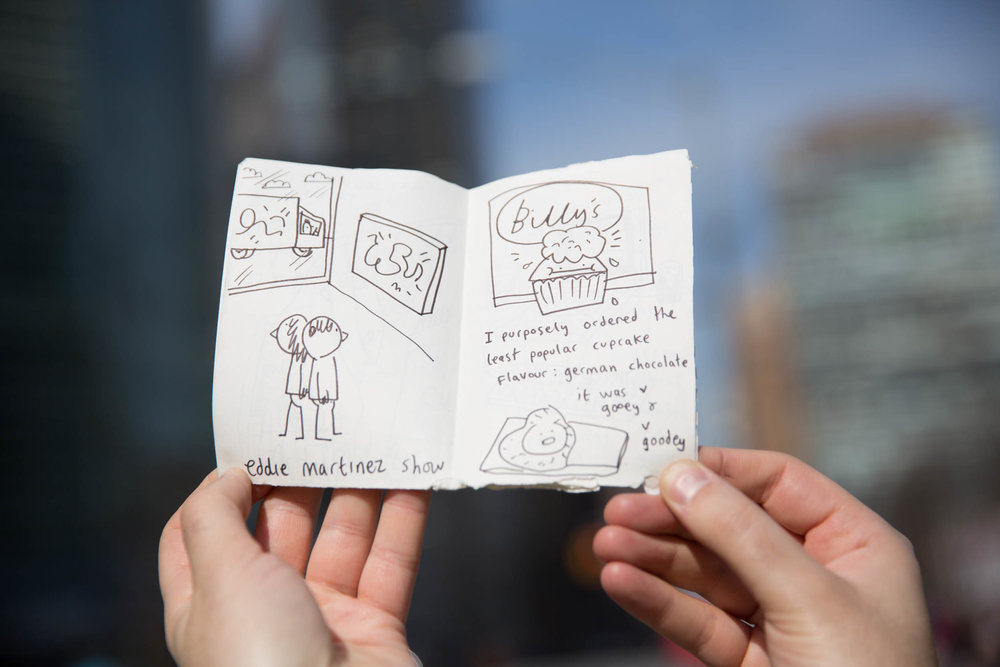 eddie martinez show
Billy's
I purposely ordered the
least popular cupcake
flavour: german chocolate
it was v
gooey &
v
goodey